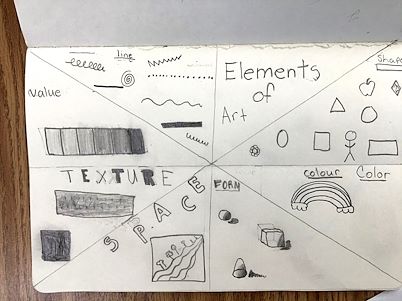 line
Elements
of
Art
Shape
value
TEXTURE
SPACE
FORM
colour Color